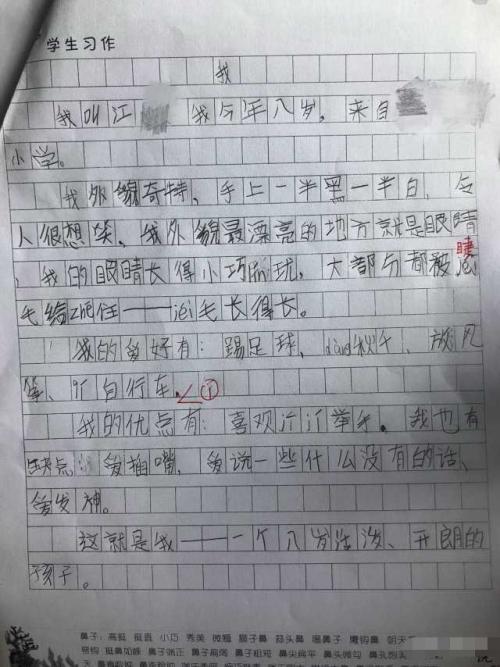 学生习作
我
我叫江 我今年八岁，来自
小学。
我外貌奇特，手上一半黑一半白，令
人很想笑，我外貌最漂亮的地方就是眼睛
，我的眼睛长得小巧玲珑，大部分都被jié睫
毛给zhē住——jié毛长得长。
我的爱好有：踢足球，dàng秋千、放风
筝、骑自行车。①
我的优点有：喜观 举手。我也有
缺点：爱插嘴，爱说一些什么没有的话、
爱发神。
这就是我——一个八岁活泼、开朗的
孩子。
鼻子：高挺 挺直 小巧 秀美 微翘 狮子鼻 蒜头鼻 塌鼻子 鹰钩鼻 朝天
鼻子端正 鼻子扁阔 鼻子粗短 鼻尖扁平 鼻头微勾